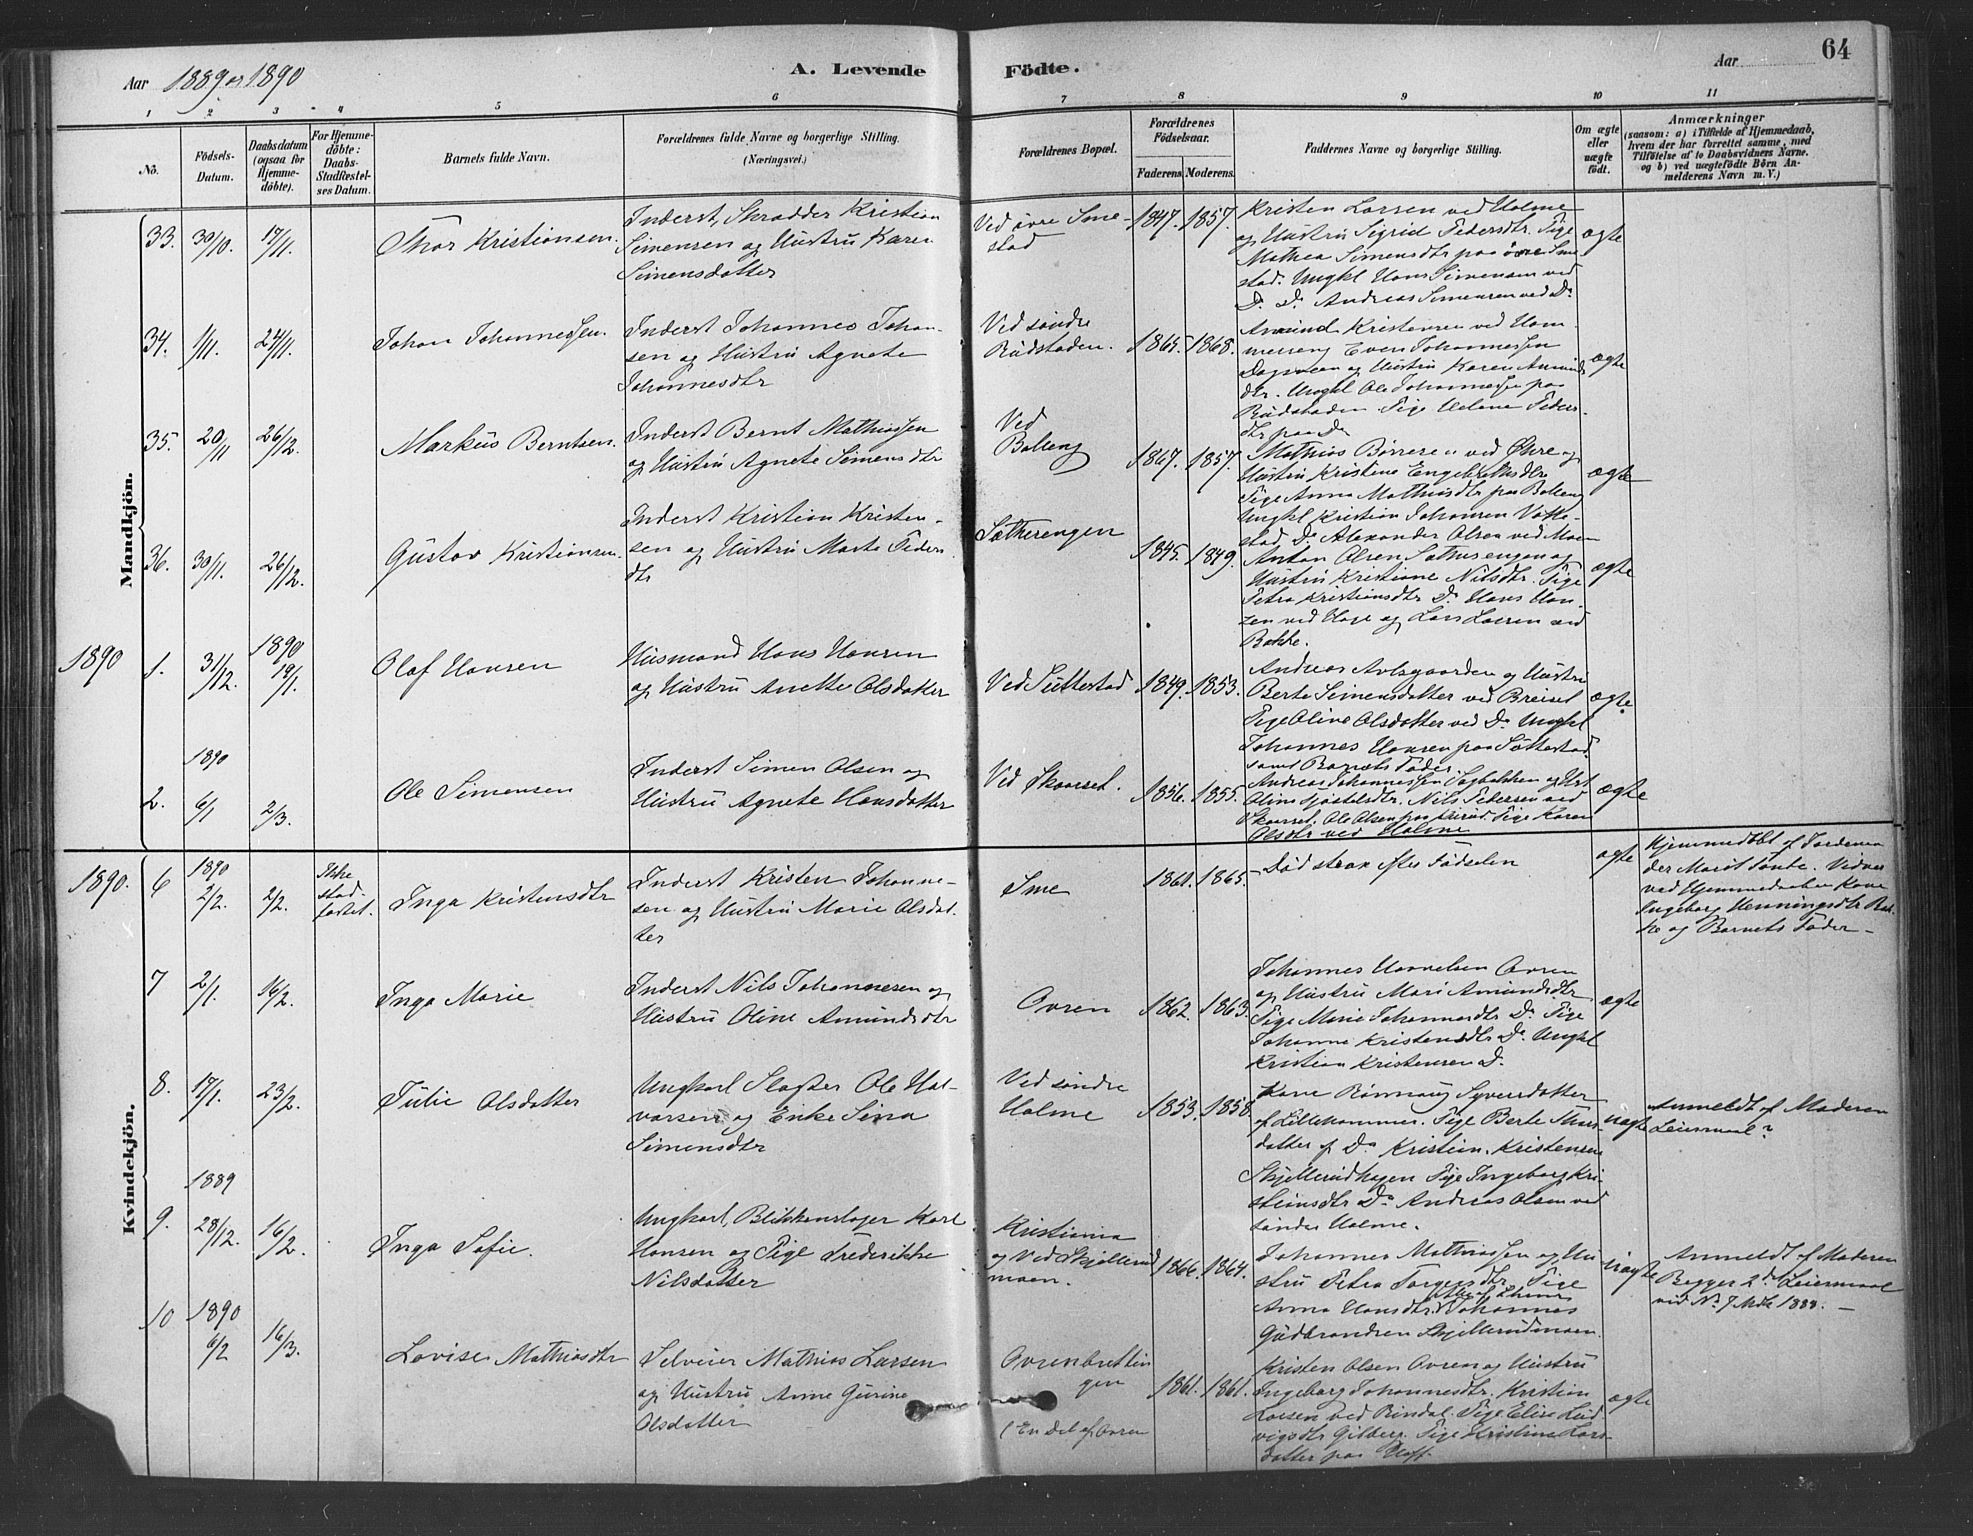 Aar 1889 og 1890
A. Levende Födte.
Aar
64
1 2 3 4 5 6 7 8 9 10 11
No.
Födsels-Datum.
Daabsdatum (ogsaa for Hjemmedöbte).
For Hjemmedöbte: Daabs-Stadfæstelses Datum.
Barnets fulde Navn.
Forældrenes fulde Navne og borgerlige Stilling. (Næringsvei.)
Forældrenes Bopæl.
Forældrenes Födselsaar.
Faderens. Moderens.
Faddernes Navne og borgerlige Stilling.
Om ægte eller uægte födt.
Anmærkninger
(saasom: a) i Tilfælde af Hjemmedaab, hvem der har forrettet samme, med Tilföielse af to Daabsvidners Navne, og b) ved uægtefödte Börn Anmelderens Navn m. V.)
Mandkjön.
33. 30/10. 17/11. Thor Kristiansen.
Inderst, Skrædder Kristian
Simensen og Hustru Karen
Simensdatter
Ved øvre Sme-
stad
1847. 1857.
Kristen Larsen ved Holme
og Hustru Sigrid Pedersdtr. Pige
Mathea Simensdtr paa övre Sme
stad. Ungkl Hans Simensen ved
Do. Do. Andreas Simensen ved Do
ægte
34. 1/11. 24/11. Johan Johannessen.
Inderst Johannes Johan-
sen og Hustru Agnete
Johannesdtr
Ved söndre
Rudstaden.
1865. 1868.
Amund Kristensen ved Hom
merseng Even Johannessen
og Hustru Karen Amunds
dtr. Ungkl Ole Johannessen paa
Rudstaden. Pige Helene Peders-
dtr paa Do
ægte
35. 20/11 26/12. Markus Berntsen.
Inderst Bernt Mathiassen
og Hustru Agnete Simensdtr
Ved
Balleng
1867. 1857.
Mathias ved Øhre og
Hustru Kristine Engebretsdtr
Pige Anna Mathiasdtr paa Balleng
Ungkl Kristian Johansen
stad. Do Alexander Olsen ved Moen
ægte
36. 30/11. 26/12. Gustav Kristiansen.
Inderst Kristian Kristen-
sen og Hustru Marte Peders
dtr
Sætherengen
1845. 1849.
Anton Olsen Sætherengen og
Hustru Kristiane Nilsdtr. Pige
Petra Kristiansdtr Do. Hans Han-
sen ved Hage og Lars Larsen ved
Bakke.
ægte
1890
1. 31/12. 1890 19/1. Olaf Hansen
Husmand Hans Hansen
og Hustru Anette Olsdatter
Ved Suttestad
1849. 1853.
Andreas Avlsgaarden og Hustru
Berte Simensdatter ved Breisel
Pige Oline Olsdatter ved Do. Ungkl
Johannes Hansen paa Suttestad
samt Barnets Fader.
ægte
2. 1890 6/1 2/3. Ole Simensen
Inderst Simen Olsen og
Hustru Agnete Hansdatter
Ved Skaarset.
1856. 1855.
Andreas Johannessen Sagbakken og Hst
Oline Nils Pedersen ved
Skaarset. Ole Olsen paa Pige Karen
Olsdtr ved Holme
ægte
Kvindekjön.
1890. 6 1890 2/2. 2/2. Ikke stad fæstet. Inga Kristensdtr
Inderst Kristen Johanne-
sen og Hustru Marie Olsdat-
ter
Sme
1861. 1865.
Död strax efter Födselen
ægte
Hjemmedöbt af Jordemo
der Marit Tonte. Vidner
ved Hjemmedaaben Kone
Ingeborg Henningsdtr Bak
ke og Barnets Fader –
7 2/1. 16/2. Inga Marie
Inderst Nils Johannesen og
Hustru Oline Amundsdtr
Ovren
1862. 1863.
Johannes Ovren
og Hustru Mari Amundsdtr
Pige Marie Johannesdtr Do. Pige
Johanne Kristensdtr Do. Ungkl
Kristian Kristensen Do.
ægte
8. 17/1. 23/2. Julie Olsdatter
Ungkarl Slagter Ole Hal-
varsen og Enke Sina
Simensdtr
Ved söndre
Holme
1853. 1858.
Kone Rönnaug Syversdatter
af Lillehammer. Pige Berte Thors-
datter af Do Kristian Kristensen
Skjellerudhagen Pige Ingeborg Kri-
stiansdtr Do. Andreas Olsen ved
söndre Holme.
uægte
Anmeldt af Moderen
Leiermaal?
9. 1889 28/12. 16/2. Inga Sofie.
Ungkarl, Blikkenslager Karl
Hansen og Pige Frederikke
Nilsdatter
Kristiania
og Ved Skjellerud
moen.
1866. 1864.
Johannes Mathiassen og Hu
stru Petra Torgersdtr. Pige
Anna Hansdtr. Johannes
Gudbrandsen Skjellerudmoen.
uægte
Anmeldt af Moderen
Begges 2det Leiermaal
vid No 7 1888. –
10 1890 6/2 16/3. Lovise Mathiasdtr
Selveier Mathias Larsen
og Hustru Anne Gurine
Olsdatter
Ovrenbrettin
gen
(En Del af Ovren
1861. 1861.
Kristen Olsen Ovren og Hustru
Ingeborg Johannesdtr. Kristian
Larsen ved Rindal. Pige Elise Lud
vigsdtr Gilberg. Pige Kristine Lars-
datter paa Hoff.
ægte